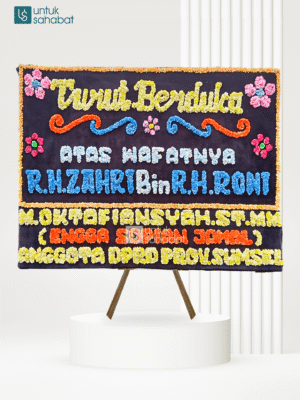 untuk
sahabat
Turut Berduka
ATAS WAFATNYA
R.H.ZAHRI Bin R.H.RONI
M.OKTAFIANSYAH.ST.MM
( ANGGA SOPIAN JAMAL )
ANGGOTA DPRD PROV.SUMSEL